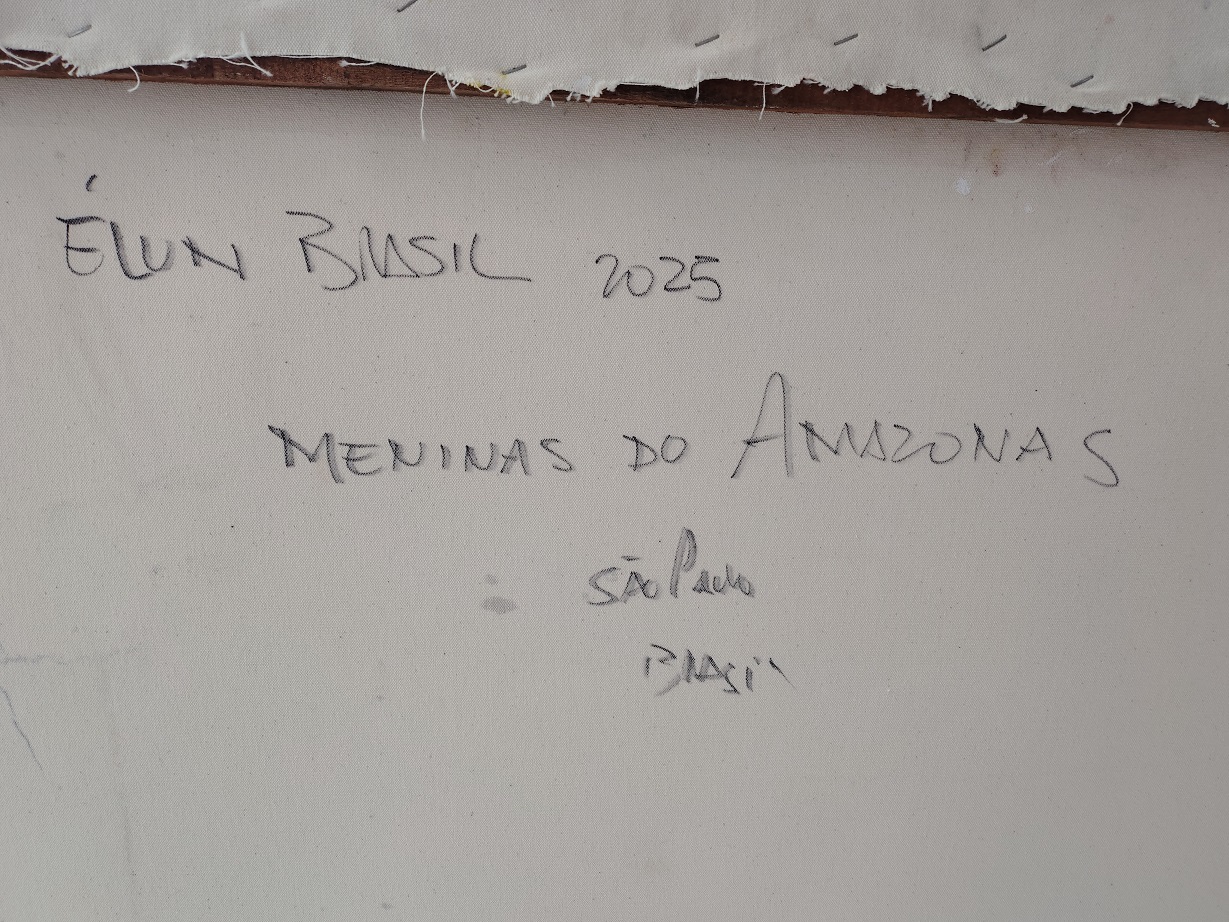 ÉLUN BRASIL 2025
MENINAS DO AMAZONAS
SÃO Paulo
BRASIL